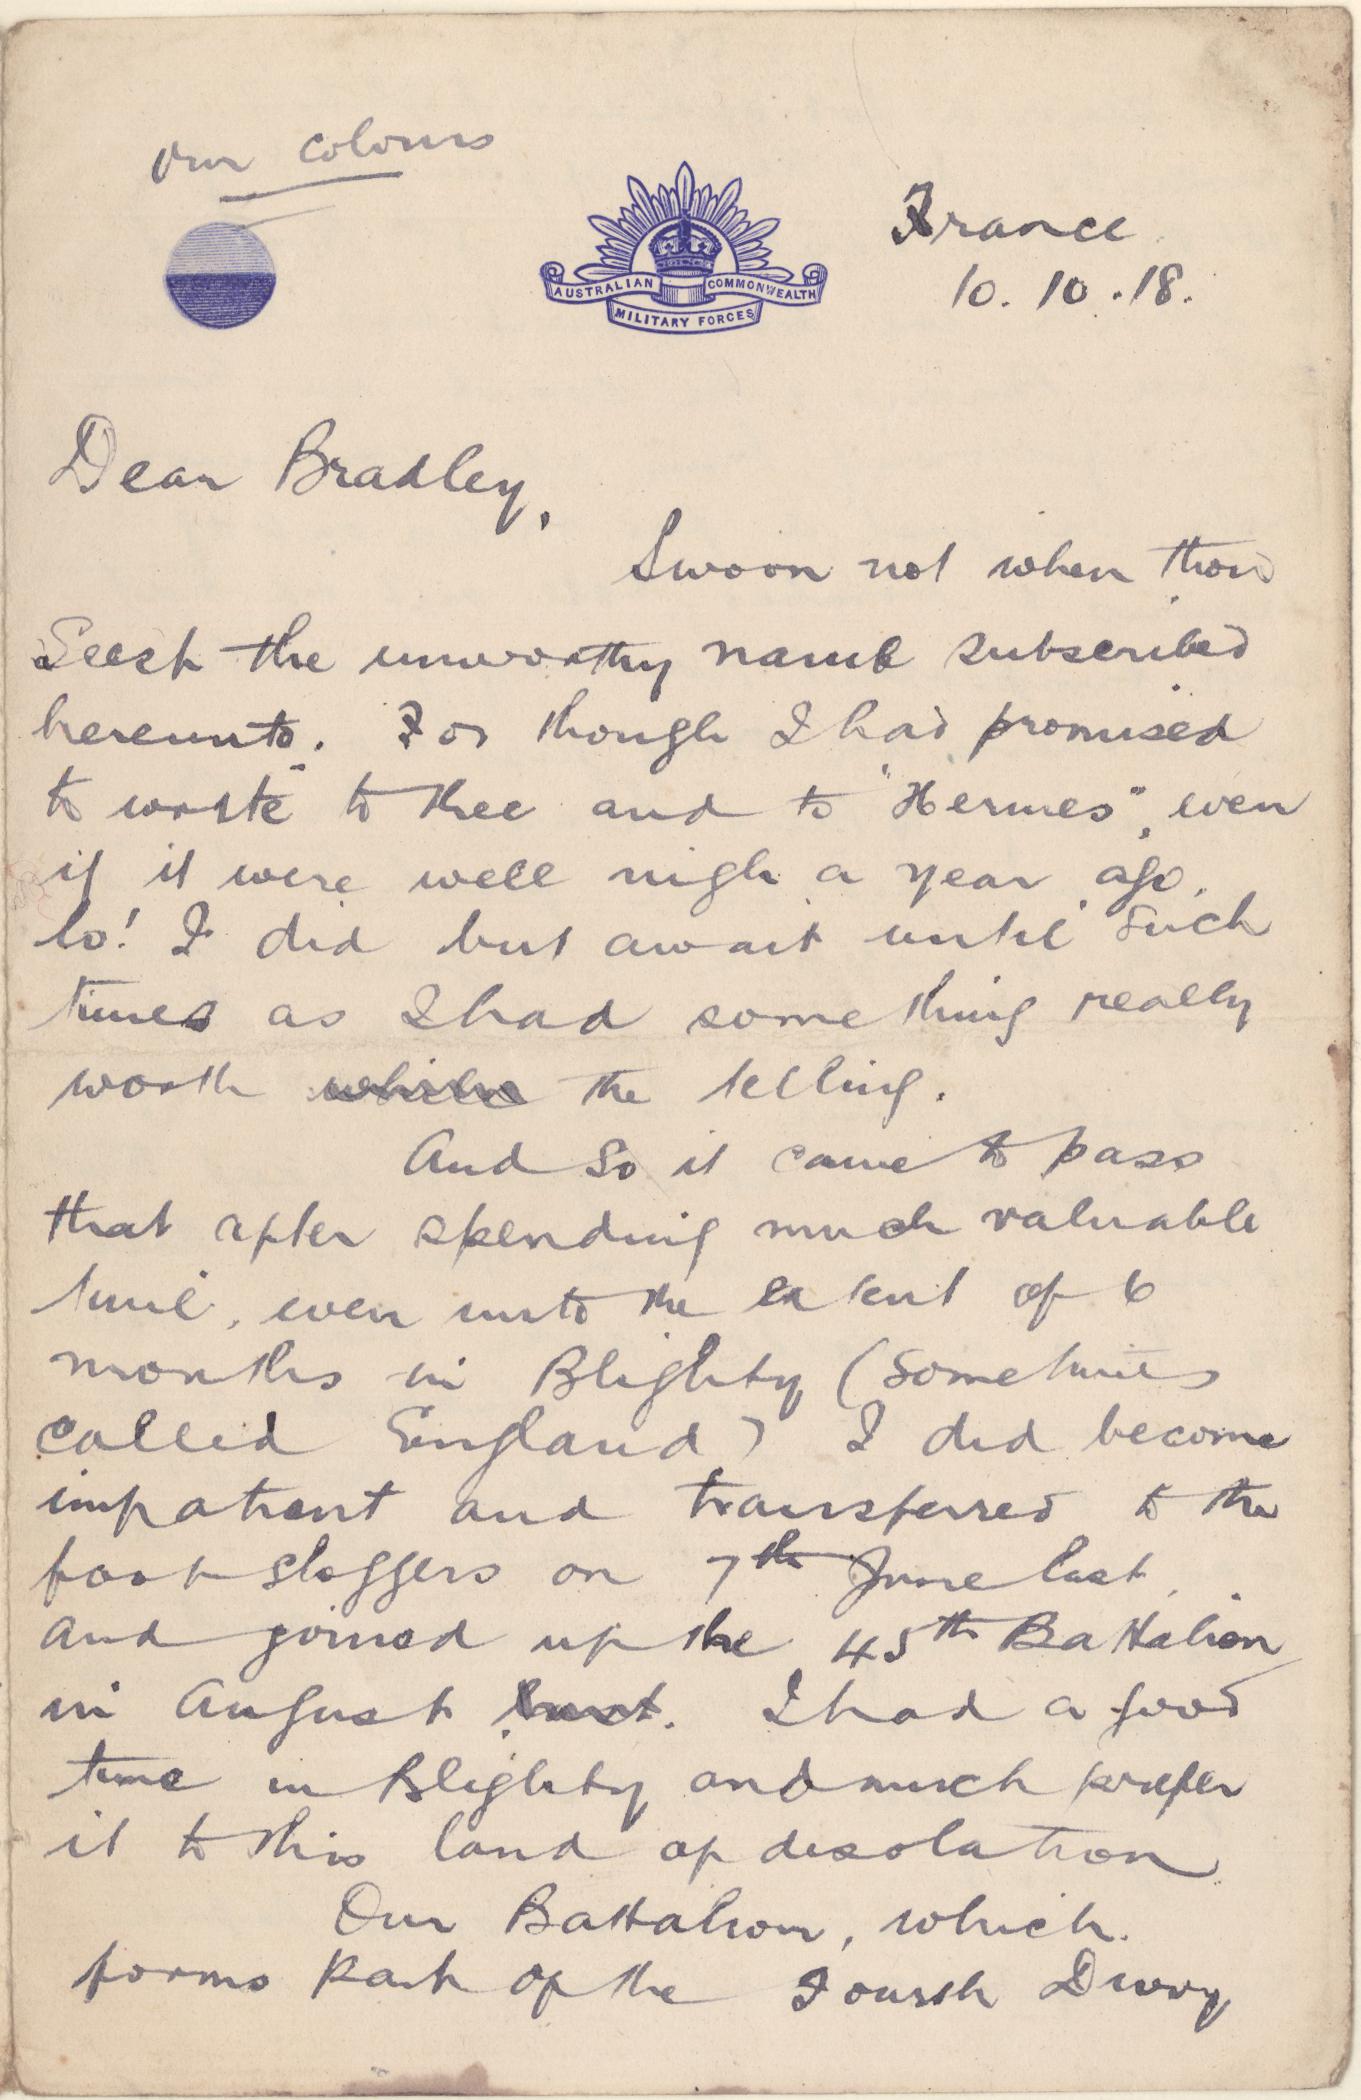 Our colours
AUSTRALIAN COMMONWEALTH
MILITARY FORCES
France
10.10.18.
Dear Bradley,
Swoon not when thou
Seest the unworthy name subscribed
hereunto. For though I had promised
to "write" to thee and to "Hermes", even
if it were well nigh a year ago,
lo! I did but await until such
times as I had something really
worth while the telling.
And so it came to pass
that after spending much valuable
time, even unto the extent of 6
months in Blighty (sometimes
called England) I did become
impatient and transferred to the
foot sloggers on 7th June last,
and joined up the 45th Battalion
in August last. I had a good
time in Blighty and much prefer
it to this land of desolation
Our Battalion, which
forms part of the Fourth Divvy